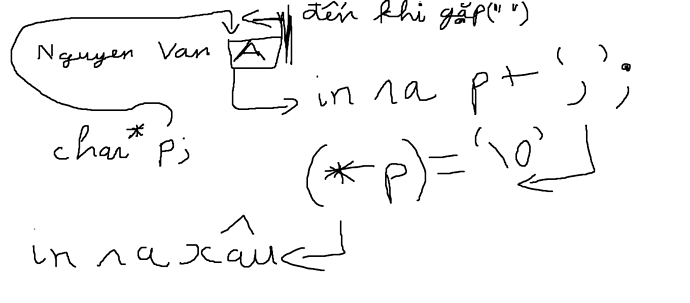 đến khi gặp(" ")
Nguyen Van A
in ra p + ',';
char* p;
(*p) = '\0'
in ra xâu